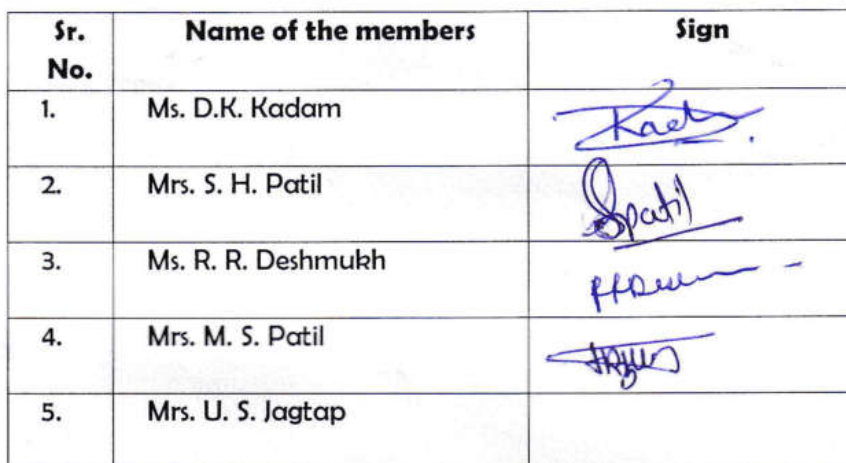 Sr. No. Name of the members Sign
1. Ms. D.K. Kadam Kad
2. Mrs. S. H. Patil SPatil
3. Ms. R. R. Deshmukh
4. Mrs. M. S. Patil
5. Mrs. U. S. Jagtap